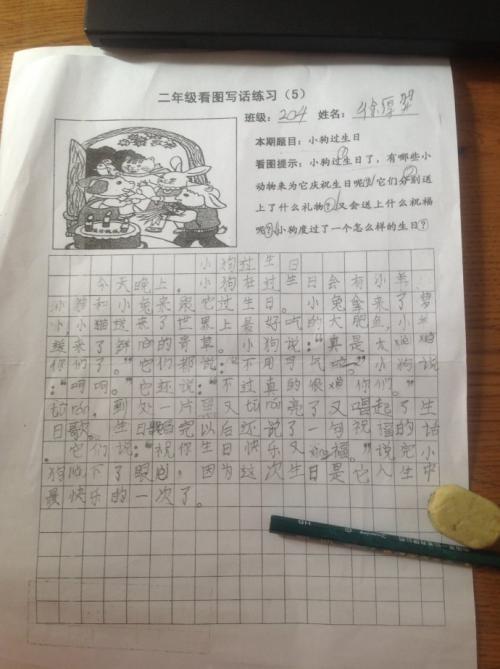 二年级看图写话练习（5）
班级：204 姓名：徐
本期题目：小狗过生日
看图提示：小狗过生日了，有哪些小
动物来为它庆祝生日呢？它们分别送
上了什么礼物？又会送上什么祝福
呢？小狗度过了一个怎么样的生日？
小狗过生日
今天晚上，小狗在过生日会有小羊、
小猫和小兔来跟它过生日。小兔拿来了萝
卜小猫拔来了世界上最好吃的大肥鱼，小羊
拔来了新的青草。小狗说：“真是太
你们了。”它们都说：“不用客气啦。”小狗说
：“呵呵。”它还说：“不过真的很 你们。”
到处一片黑又 亮了又唱起了生
日歌。生日歌唱完以后还说了一句祝福的话
。它们说：“祝你生日快乐又 福。”说完小
狗流下了眼 ，因为这次生日是它人生中
最快乐的一次了。
HB